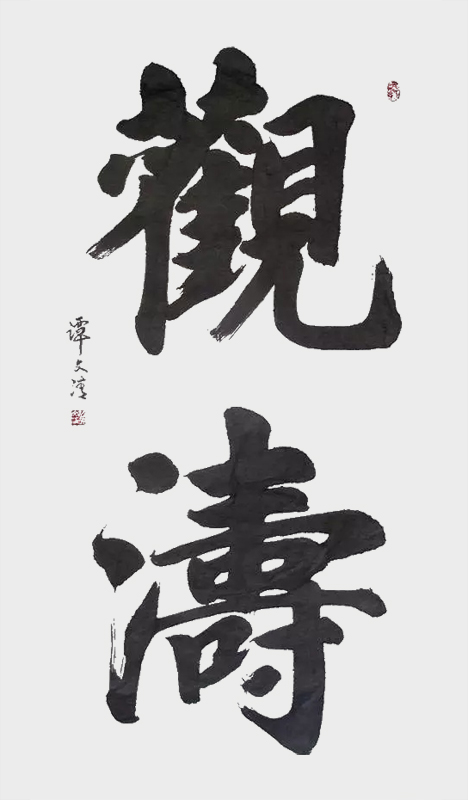 觀濤
譚文